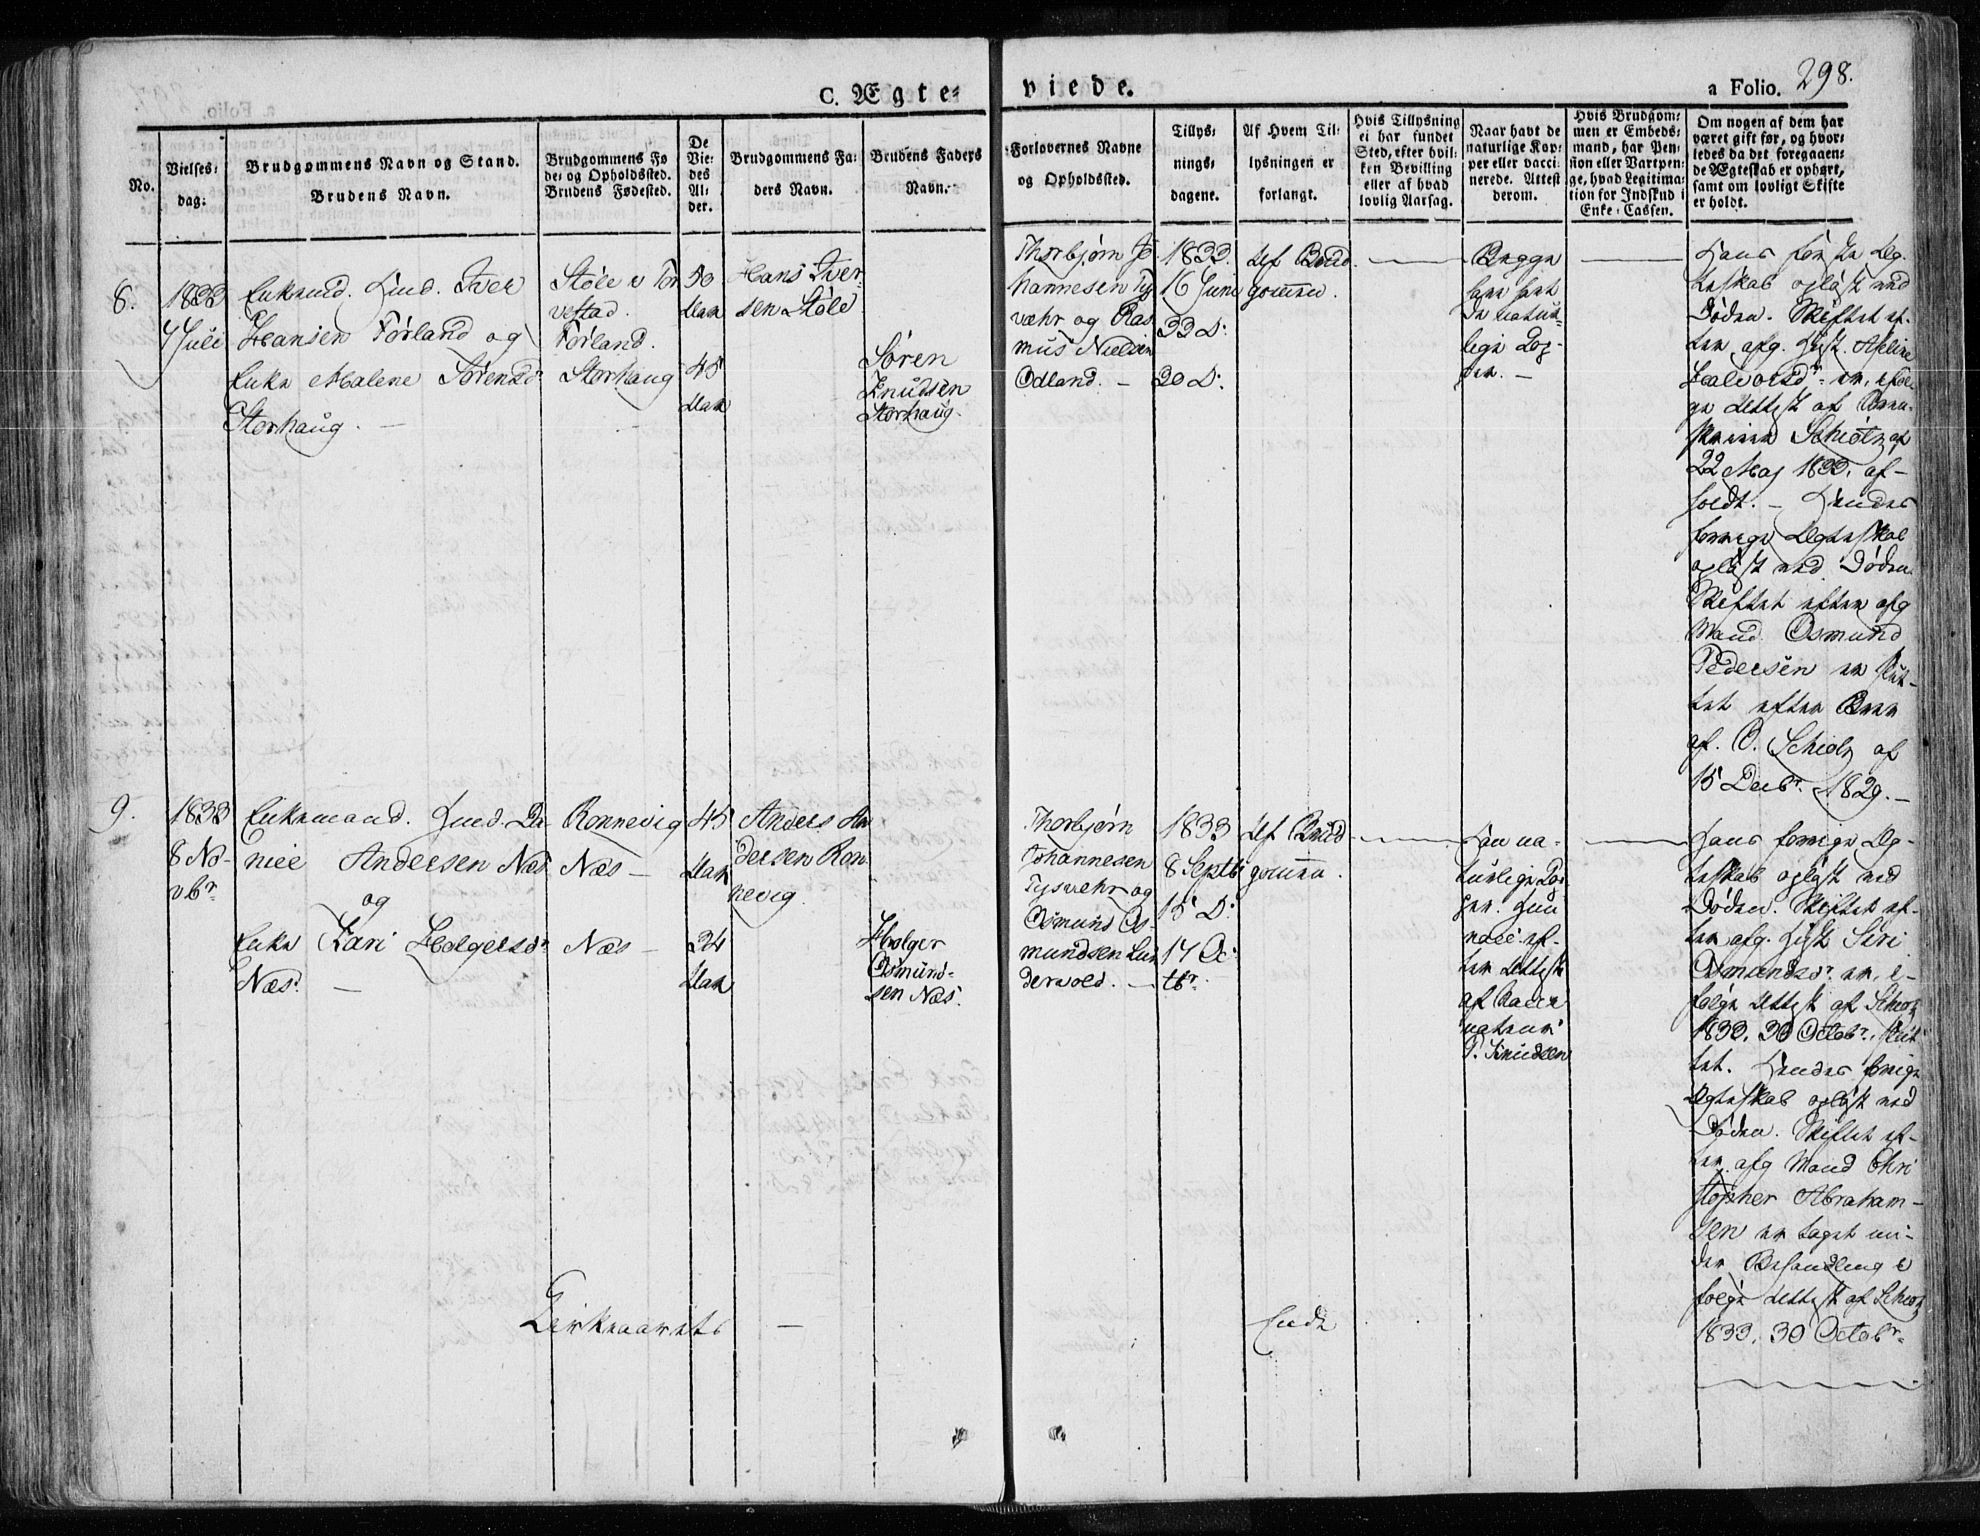 C. Ægte-
viede.
a Folio. 298.
No.
Vielses-
dag.
Brudgommens Navn og Stand.
Brudens Navn.
Brudgommens Fø
de- og Opholdssted.
Brudens Fødested.
De
Vie-
des
Al-
der.
Brudgommens Fa-
ders Navn.
Brudens Faders
Navn.
Forlovernes Navne
og Opholdssted.
Tillys-
nings-
dagene.
Af Hvem Til-
lysningen er
forlangt.
Hvis Tillysning
ei har fundet
Sted, efter hvil-
ken Bevilling
eller af hvad
lovlig Aarsag.
Naar havt de
naturlige Kop-
per eller vacci-
nerede. Attest
derom.
Hvis Brudgom-
men er Embeds-
mand, har Pen-
sion eller Vartpen-
ge, hvad Legitima-
tion for Indskud i
Enke-Cassen.
Om nogen af dem har
været gift før, og hvor-
ledes da det foregaaen-
de Ægteskab er ophørt,
samt om lovligt Skifte
er holdt.
8.
1833
7 Juli
Enkemd. Gmd. Iver
Hansen Førland og
Enke Malene Sørensdr
Storhaug. —
Støle i Tor
vestad.
Førland.
Storhaug
50
Aar
45
Aar
Hans Iver-
sen Støle
Søren
Knudsen
Storhaug.
Thorbjørn Jo
hannesen Tys
væhr og Ras
mus Nielsen
Odland. —
1833.
16 Juni
23 D:
30 D:
Af Brud
gommen.
Begge
have havt
de natur-
lige Kop-
per. —
Hans første Æg-
teskab opløst ved
Døden. Skiftet ef-
ter afg. Hust. Aseline
Halvorsdr er, iføl-
ge Attest af
Schiøtz af
22 Maj 1833, af-
holdt. — Hendes
forrige Ægteskab
opløst ved Døden.
Skiftet efter afg
Mand Osmund
Pedersen er slut-
tet efter
af O. Schiøtz af
15 Decbr. 1829. —
9.
1833
8 No-
vbr
Enkemand. Gmd. Da
niel Andersen Næs
og
Enke Kari Holgersdr
Næs. —
Ronnevig
Næs —
Næs —
45
Aar
34
Aar
Anders An
dersen Ron
nevig.
Holger
Osmund-
sen Næs.
Thorbjørn
Johannesen
Tysvæhr og
Osmund Os-
mundsen Lin
dervold. —
1833
8 Septb
15 D:
17 Oc-
tbr.
Af Brud
gommen.
Han na-
turlige Kop
per. Hun
vacc. ef-
ter Attest
af Vacci
nateur
P. Knudsen
Hans forrige Æg-
teskab opløst ved
Døden. Skiftet ef-
ter afg. Hust. Siri
Osmundsdr er, i-
følge Attest af Schiøtz
1833, 30 Octobr, slut-
tet. Hendes forrige
Ægteskab opløst ved
Døden. Skiftet ef-
ter afg Mand Chri
stopher Abraham-
sen er taget un-
der Behandling i
følge Attest af Schiøtz
1833, 30 Octobr.
Kirkeaarets —
Ende